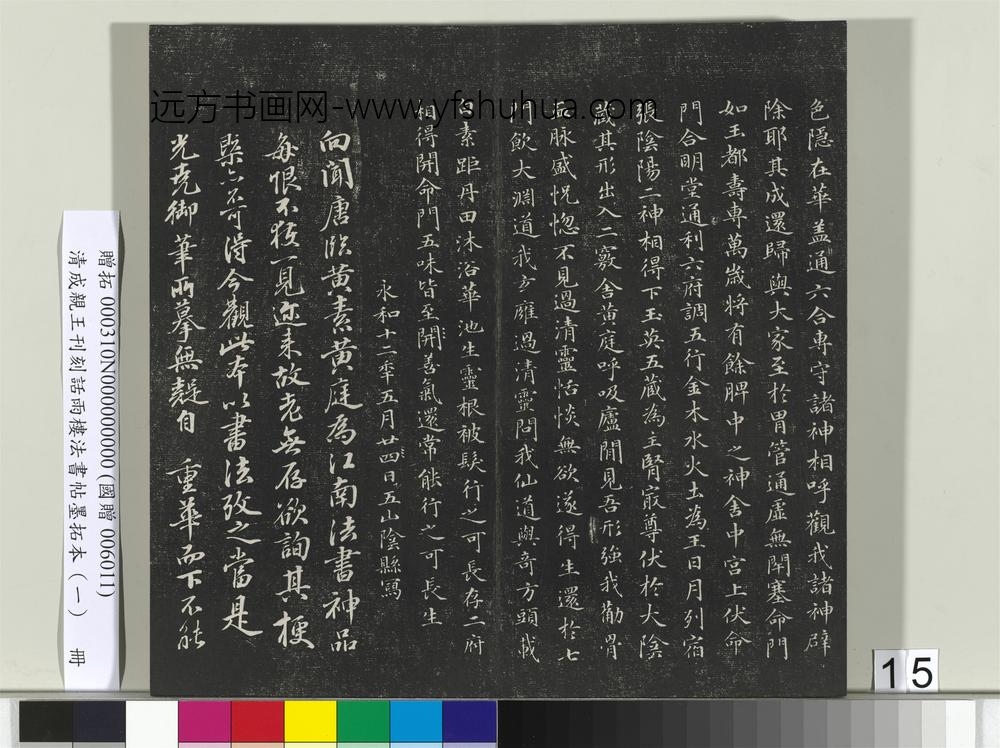 色隱在華盖通六合專守諸神相呼觀我諸神辟
除耶其成還歸與大家至於胃管通虛無閇塞命門
如玉都壽專萬歲將有餘脾中之神舍中宮上伏命
門合明堂通利六府調五行金木水火土為王日月列宿
張陰陽二神相得下玉英五藏為主腎寂尊伏於大陰
藏其形出入二竅舍黃庭呼吸廬間見吾形強我勸骨
血脉盛怳惚不見過清靈恬惔無欲遂得生還於七
門飲大淵道我玄雍過清靈問我仙道與奇方頭載
白素距丹田沐浴華池生靈根被髮行之可長存二府
相得開命門五味皆至開善氣還常能行之可長生
永和十二年五月廿四日五山陰縣寫
向聞唐臨黃素黃庭為江南法書神品
每恨不獲一見迩来故老無存欲詢其梗
槩亦不可得今觀此本以書法攷之當是
光堯御筆所摹無疑自 重華而下不能
远方书画网-www.yfshuhua.com
贈拓 000310N000000000 (國贈 006011)
清成親王刊刻詒晉樓法書帖墨拓本(一) 冊
15